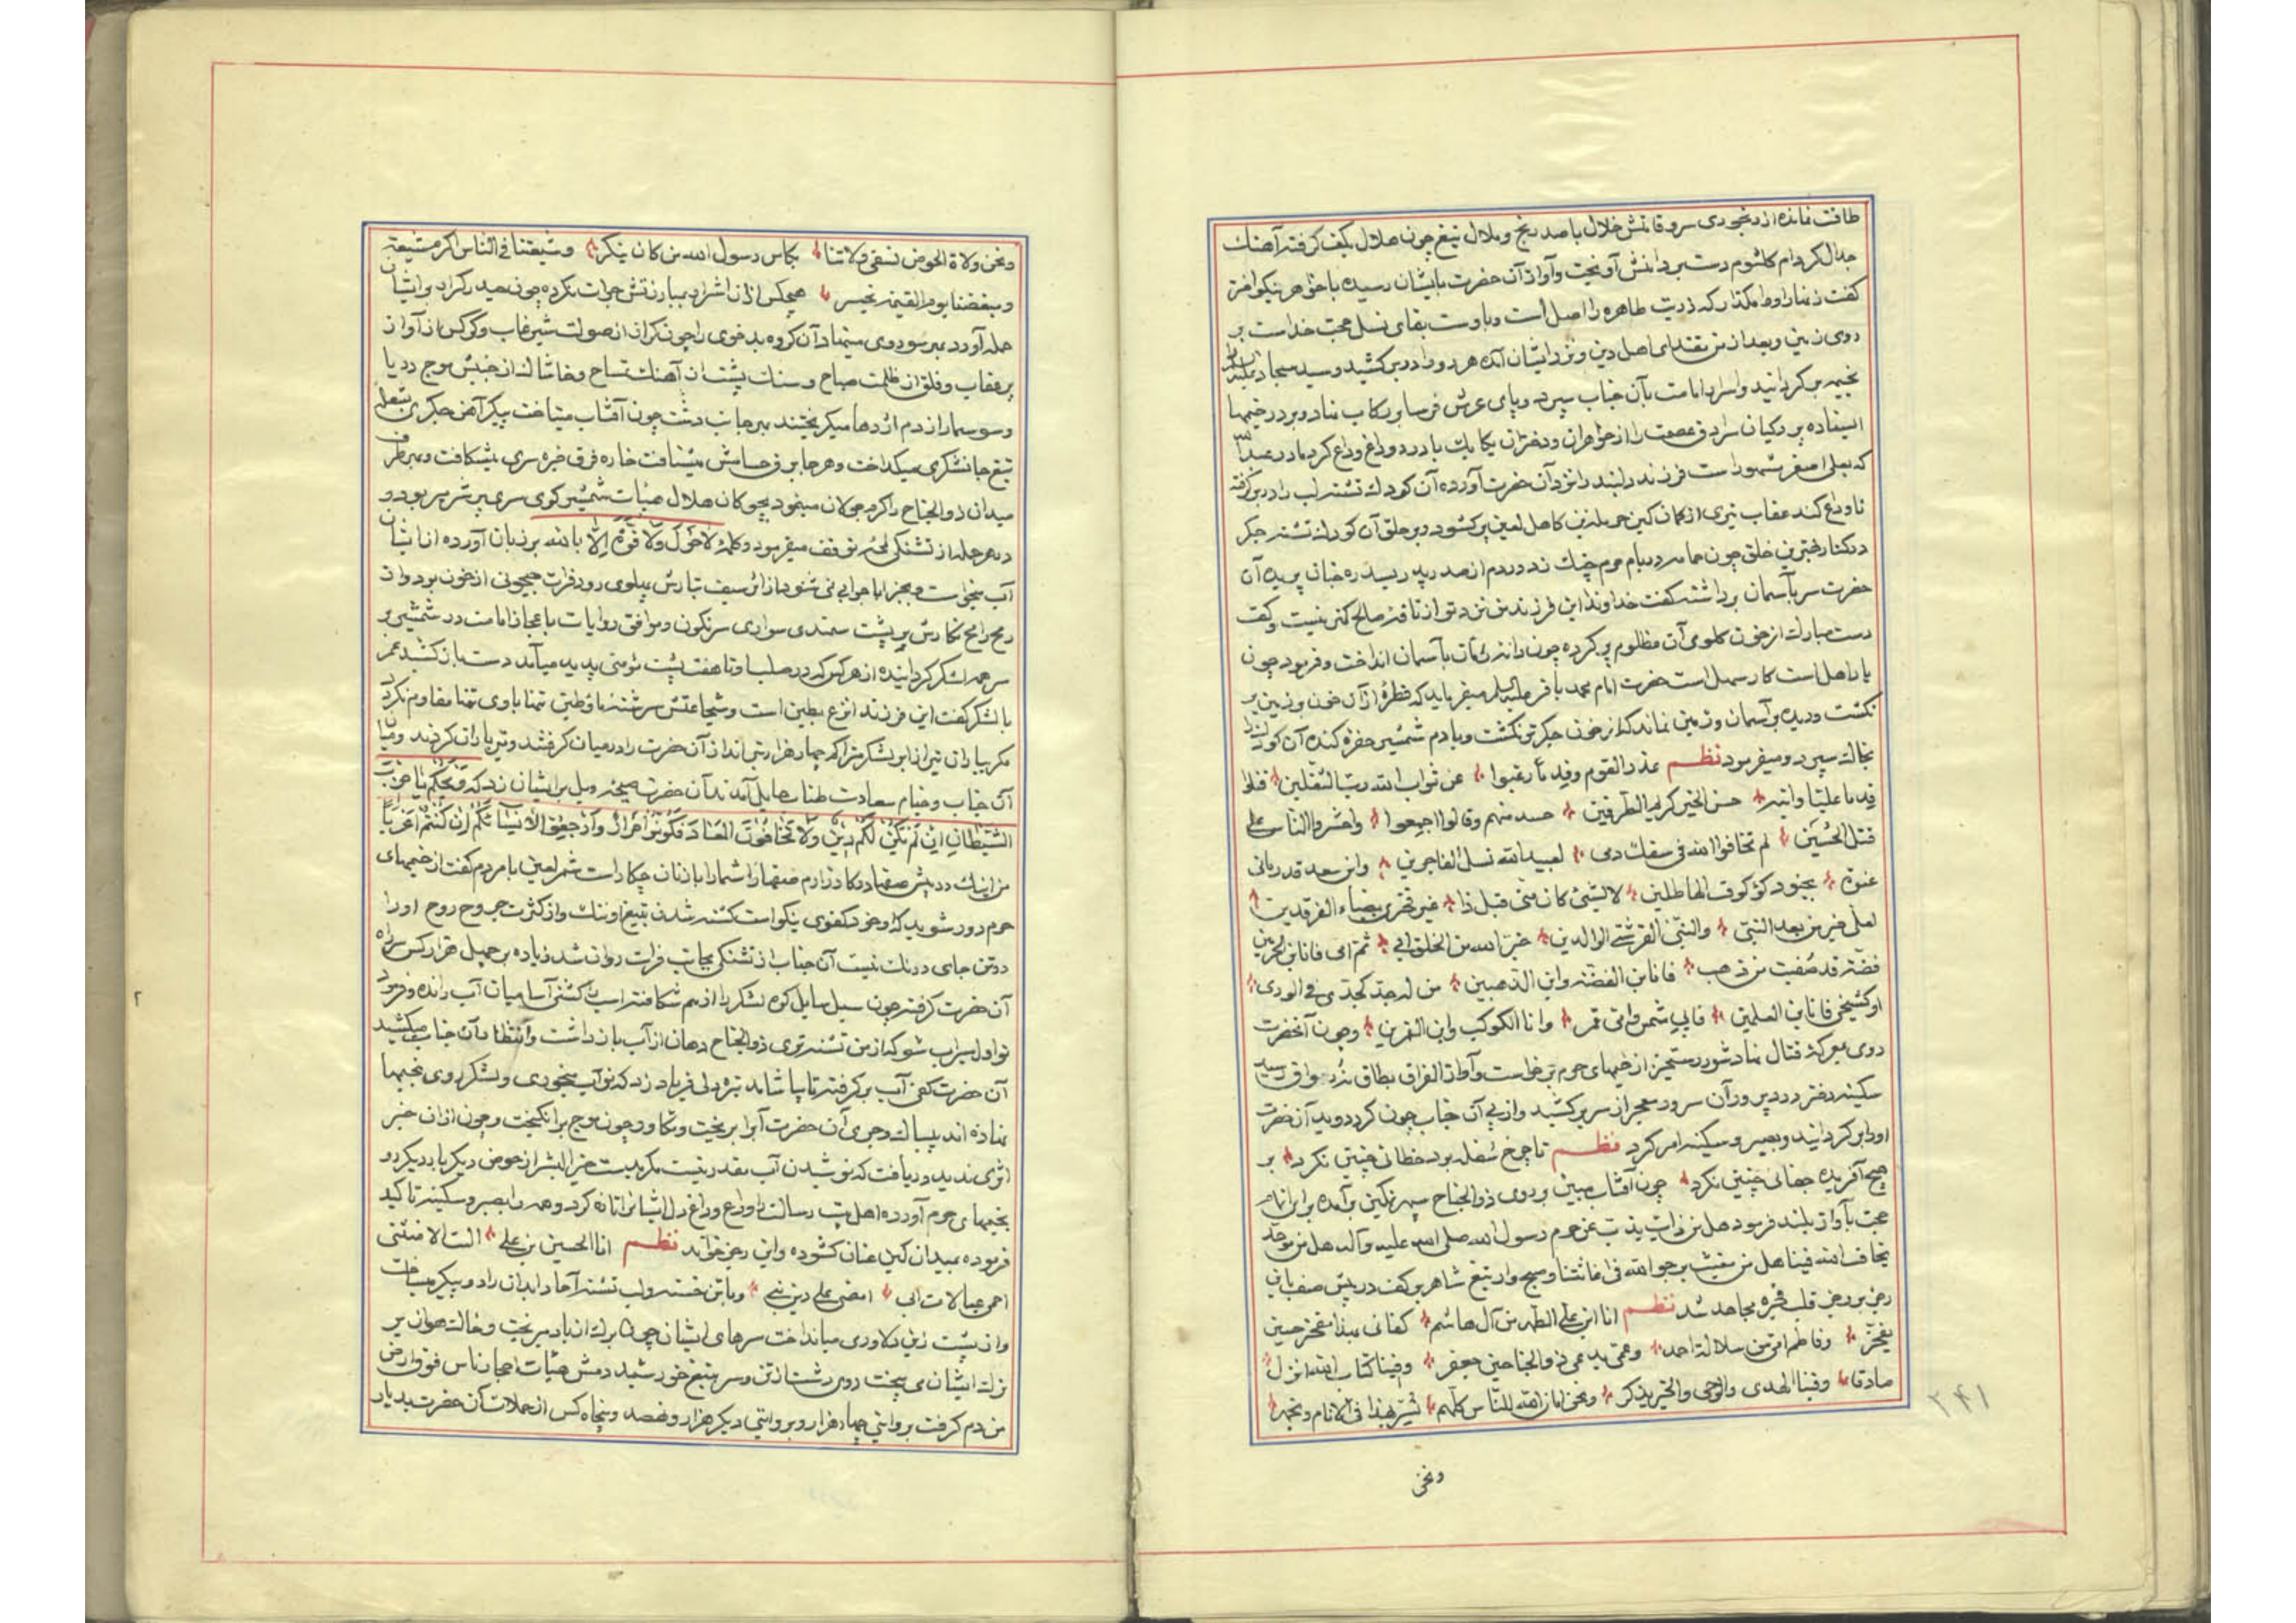 طاقت نمانده از رنجوری سرو قامتش خلال با صد رنج و ملال تیغ چون هلال بکف گرفته آهنك
جدال کرد ام کلثوم دست بر دامنش آویخت و آواز آن حضرت بایشان رسیده با خواهر نیکو اختر
کفت زنهار او را مکذار که ذریت طاهره را اصل است و باوست بقای نسل حجت خداست بر
روی زمین و بعد از من مقتدای اهل دین و نزد ایشان آمده هر دو را در بر کشید و سید سجاد
بخیمه بر کردانید و اسرار امامت بآن جناب سپرد و پای عرش فرسا بر رکاب نهاد و بر در خیمها
ایستاده پردکیان سرادق عصمت را از خواهران و دختران یکایك با درد و داغ وداع کرد مادر عبدالله
که بعلی اصغر مشهور است فرزند دلبند را نزد آن حضرت آورده آن کودك تشنه لب را در بر کرفته
تا وداع کند عقاب تیری از کمان کین حرمله بن کاهل لعین پر کشود و بر حلق آن کودك تشنه جکر
در کنار بهترین خلق چون حمامه در بام حرم چنك زد در دم از صدر پدر بسدره جنان پرید آن
حضرت سر بآسمان برداشته کفت خداوندا این فرزند من نزد تو از ناقه صالح کمتر نیست و کف
دست مبارك از خون کلوی آن مظلوم پر کرده چون دانه بآسمان انداخت و فرمود چون
یار اهل است کار سهل است حضرت امام محمد باقر علیه السلم میفرماید که قطرهٔ از آن خون بزمین بر
نکشت و دیده بر آسمان و زمین نماند که از خون جکر تر نکشت و با دم شمشیر حفره کنده آن کودك را
بخاك سپرد و میفرمود نظم غدر القوم وقدما رغبوا عن ثواب الله رب الثقلین قتلوا
قدما علیا وابنه حسن الخیر کریم الطرفین حسد منهم وقالوا اجمعوا واحشروا الناس علی
قتل الحسین لم تخافوا الله فی سفك دمی لعبیدالله نسل الفاجرین وابن سعد قد رمانی
عنوة بجنود کوکوف الهاطلین لا لشیء کان منی قبل ذا غیر فخری بضیاء الفرقدین
لعلی خیر من بعد النبی والنبی القرشی الوالدین خیر الله من الخلق ابی ثم امی فانا ابن الخیرتین
فضة قد صفیت من ذهب فانا بن الفضة وابن الذهبین من له جد کجدی فی الوری
او کشیخی فانا بن العلمین فابی شمس وامی قمر وانا الکوکب وابن القمرین وچون آنحضرت
روی بمعرکهٔ قتال نهاد شور رستخیز از خیمهای حرم برخاست و آواز الفراق بطاق رسید
سکینه دختر درد پرور آن سرور معجر از سر بر کشید و از پی آن جناب چون کرد دوید آن حضرت
او را بر کردانید و بصبر و سکینه امر کرد نظم تا چرخ سفله بود خطائی چنین نکرد بر
هیچ آفریده جفائی چنین نکرد چون آفتاب مبین بر روی ذوالجناح سپهر نکین بر آمده برابر امام
حجت بآواز بلند فرمود هل من ذاب یذب عن حرم رسول الله صلی الله علیه وآله هل من موحد
یخاف الله فینا هل من مغیث یرجوا الله فی اغاثتنا و تیغ شاهر بر کف در پیش صف
رجز بر و قلب مجاهد شد نظم انا ابن علی الطهر من آل هاشم کفانی بهذا مفخر حین
یفخر وفاطم امی من سلالة احمد وعمی یدعی ذوالجناحین جعفر وفینا کتاب الله انزل
صادقا وفینا الهدی والوحی والخیر یذکر ونحن امان الله للناس کلهم نسر بهذا فی الانام ونجهر
ونحن
٢٤١
ونحن ولاة الحوض نسقی ولاتنا بکاس رسول الله من کان ینکر وشیعتنا فی الناس اکرم شیعة
ومبغضنا یوم القیمة یخسر هیچکس از آن اشرار بمبارزتش جرات نکرده چون حیدر کرار بر ایشان
حمله آورد بهر سو روی مینهاد آن کروه بد خوی را چون کران از صولت شیر غاب و کرکس از آواز
پر عقاب و فلق از ظلمت صباح و سنك پشت از آهنك تمساح و خاشاك از جنبش موج دریا
و سوسمار از دم اژدها میکریختند بهر جانب دشت چون آفتاب میتاخت پیکر آهن جکری بشعله
تیغ جانشکری میکداخت و هر جا برق حسامش میشتافت خاره فرق خیره سری میشکافت و بهر طرف
میدان ذوالجناح را کرم جولان مینمود بچوکان هلال هیات شمشیر کوی سری بر سر میربود و
در هر حمله از تشنکی لختی توقف میفرمود و کلمهٔ لاحول ولا قوة الا بالله بر زبان آورده از ایشان
آب میخواست و بجز ابا جوابی نمی شنود از اثر سیف پهلوی رود فرات جیحونی از خون بود و از
رمح رامح نکارش بر پشت سمندی سواری سرنکون و موافق روایات باعجاز امامت در شمشیر بر
سر همه لشکر کردانیده از هر کس که در صلب او تا هفت پشت مؤمنی پدید میآمد دست باز کشید عمر
با لشکر کفت این فرزند انزع بطین است و شجاعتش سرشته ما و طین تنها با وی تمنا مقاوم نکرد
مکر بباران تیر از ابر لشکر متراکم چهار هزار تیر انداز آن حضرت را در میان کرفتند و تیر باران کردند و میان
آن جناب و خیام سعادت طناب حایل آمدند آن حضرت صیحه ویل بر ایشان زد که ویحکم یا حزب
الشیطان ان لم تکن لکم دین ولا تخافون المعاد فکونوا احرارا وارجعوا الی انسابکم ان کنتم اعرابا
من اینك در پیش صفها در کارزارم ضعفا را شما را با زنان چکار است شمر لعین با مردم کفت از خیمهای
حرم دور شوید که او خود کفوی نیکو است کشته شدن بتیغ او ننك و از کثرت جروح روح او را
در تن جای درنك نیست آن جناب از تشنکی بجانب فرات روان شد زیاده بر چهل هزار کس سر راه
آن حضرت کرفته چون سیل سایل کوه لشکر را از هم شکافته اسب کشتی آسا میان آب رانده و فرمود
تو اول سیراب شو که از من تشنه تری ذوالجناح دهان از آب باز داشت و انتظار آن جناب میکشید
آن حضرت کفی آب بر کرفته تا بیاشامد تیره دلی فریاد زد که تو آب میخوری و لشکر روی بخیمها
نهاده اند بیباك و جری آن حضرت آب را بریخت و تکاور چون موج برانکیخت و چون از آن خبر
اثری ندید و دریافت که نوشیدن آب مقدر نیست مکر بدست خیر البشر از حوض دیکر بار دیکر رو
بخیمهای حرم آورده اهل بیت رسالت را وداع و داغ دل ایشانرا تازه کرد و همه را بصبر و سکینه تاکید
فرموده بمیدان کین عنان کشوده و این رجز خواند نظم انا الحسین بن علی الیت الا انثنی
احمی عیالات ابی امضی علی دین نبی و با تن خسته و لب تشنه آحاد ابدان را دو پیکر میساخت
و از پشت زین دلاوری میانداخت سرهای ایشان چون برك از باد میریخت و خاك هوان بر
ترك ایشان می بیخت روی دشت از تن و سر بتیغ خورشید دمش هیات اعجاز ناس فوق ارض
من دم کرفت بروایتی چهار هزار و بروایتی دیکر هزار و نهصد و پنجاه کس از حملات آن حضرت بدیار